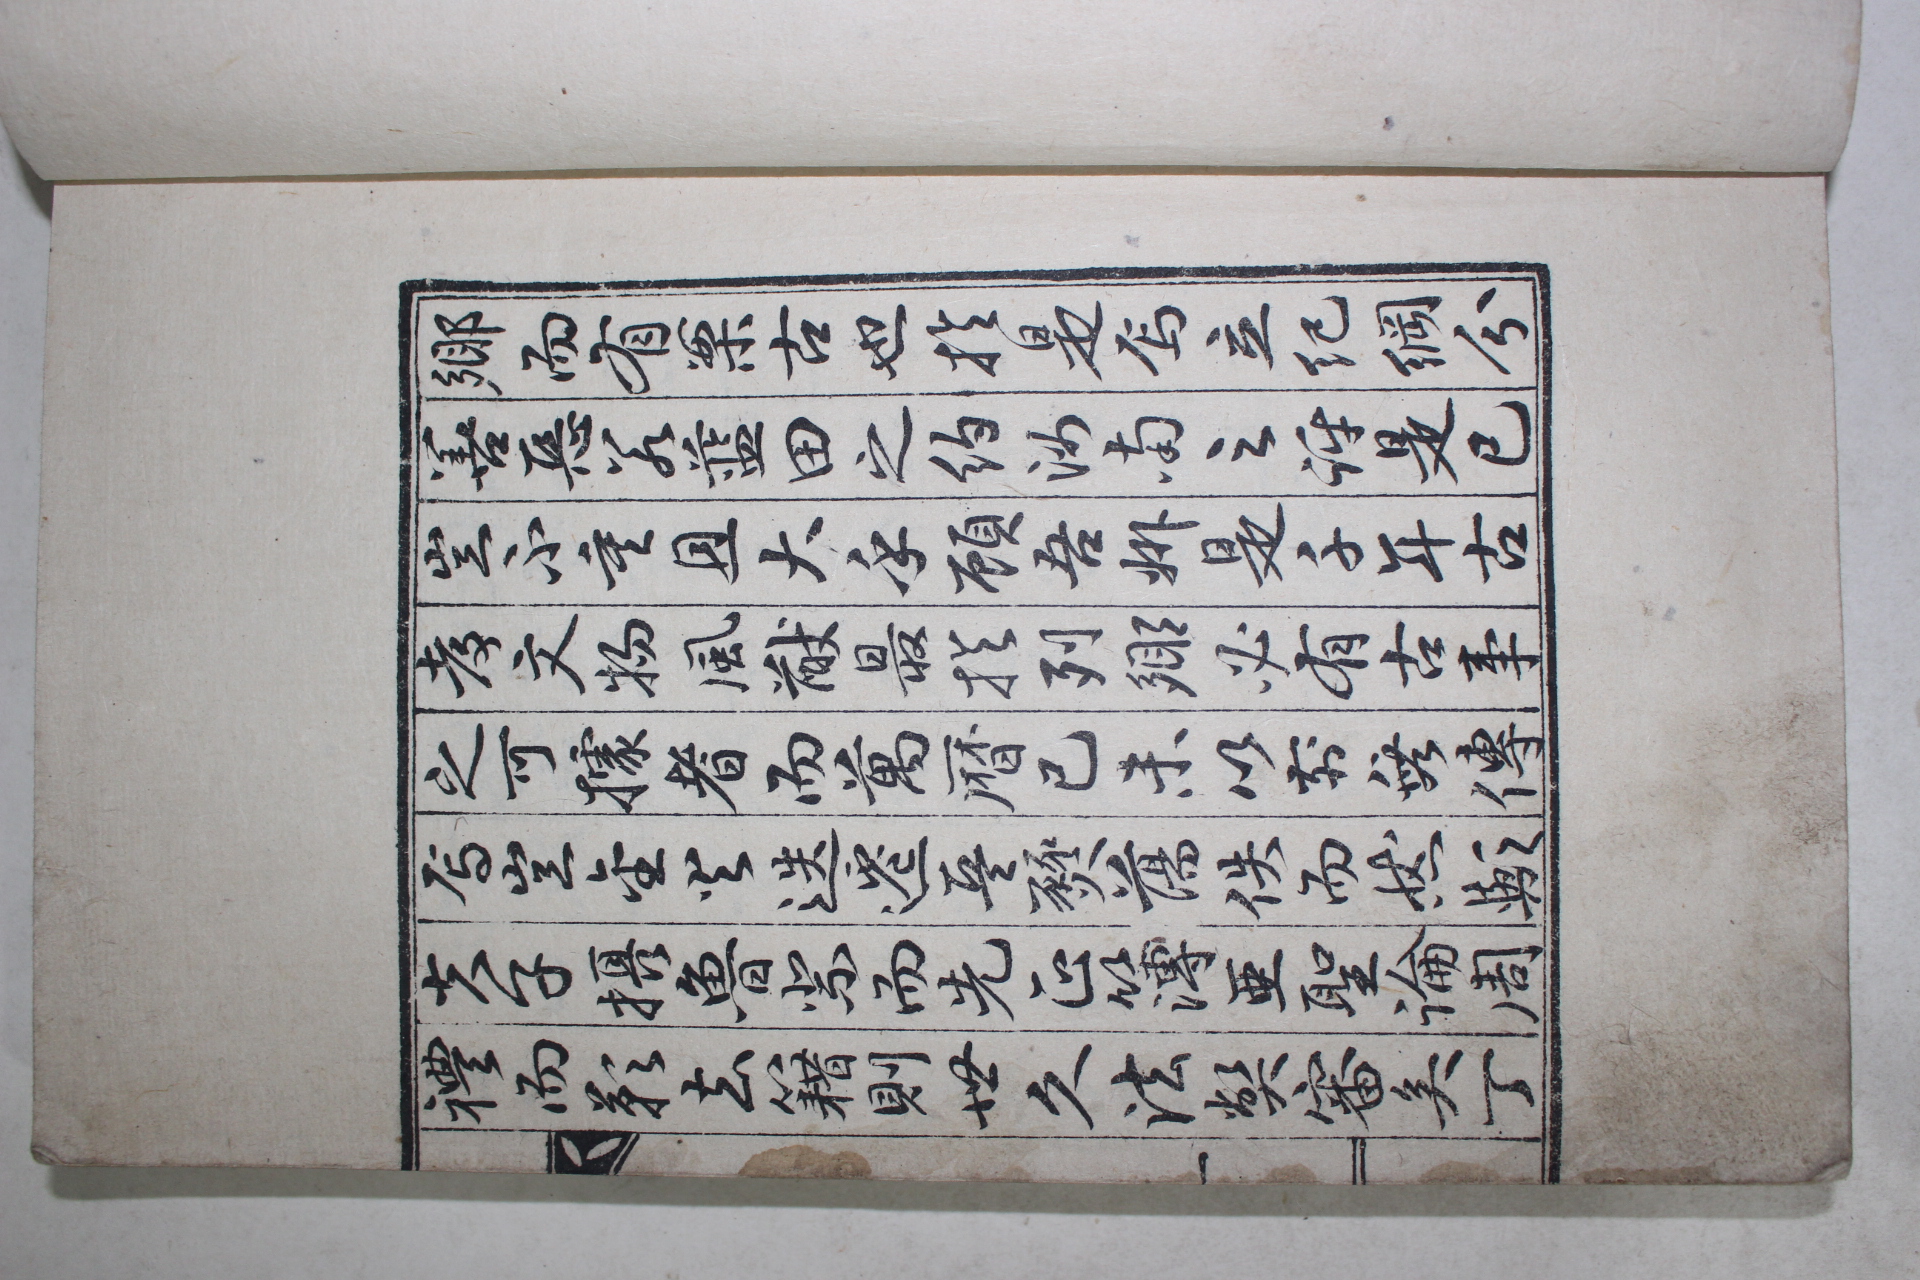 鄕而有案古也於是焉立紀綱分
善惡若藍田之約汝南之評是已
豈不重且大乎顧吾州是千年古
文物風猷最於列鄕必有古事
之可據者而萬曆已未以前無傳
焉豈金火迭遷兵燹蕩佚而然歟
夫子攝魯祭而先正簿亞聖論周
禮而歎去籍則世久法弊審矣丁
一